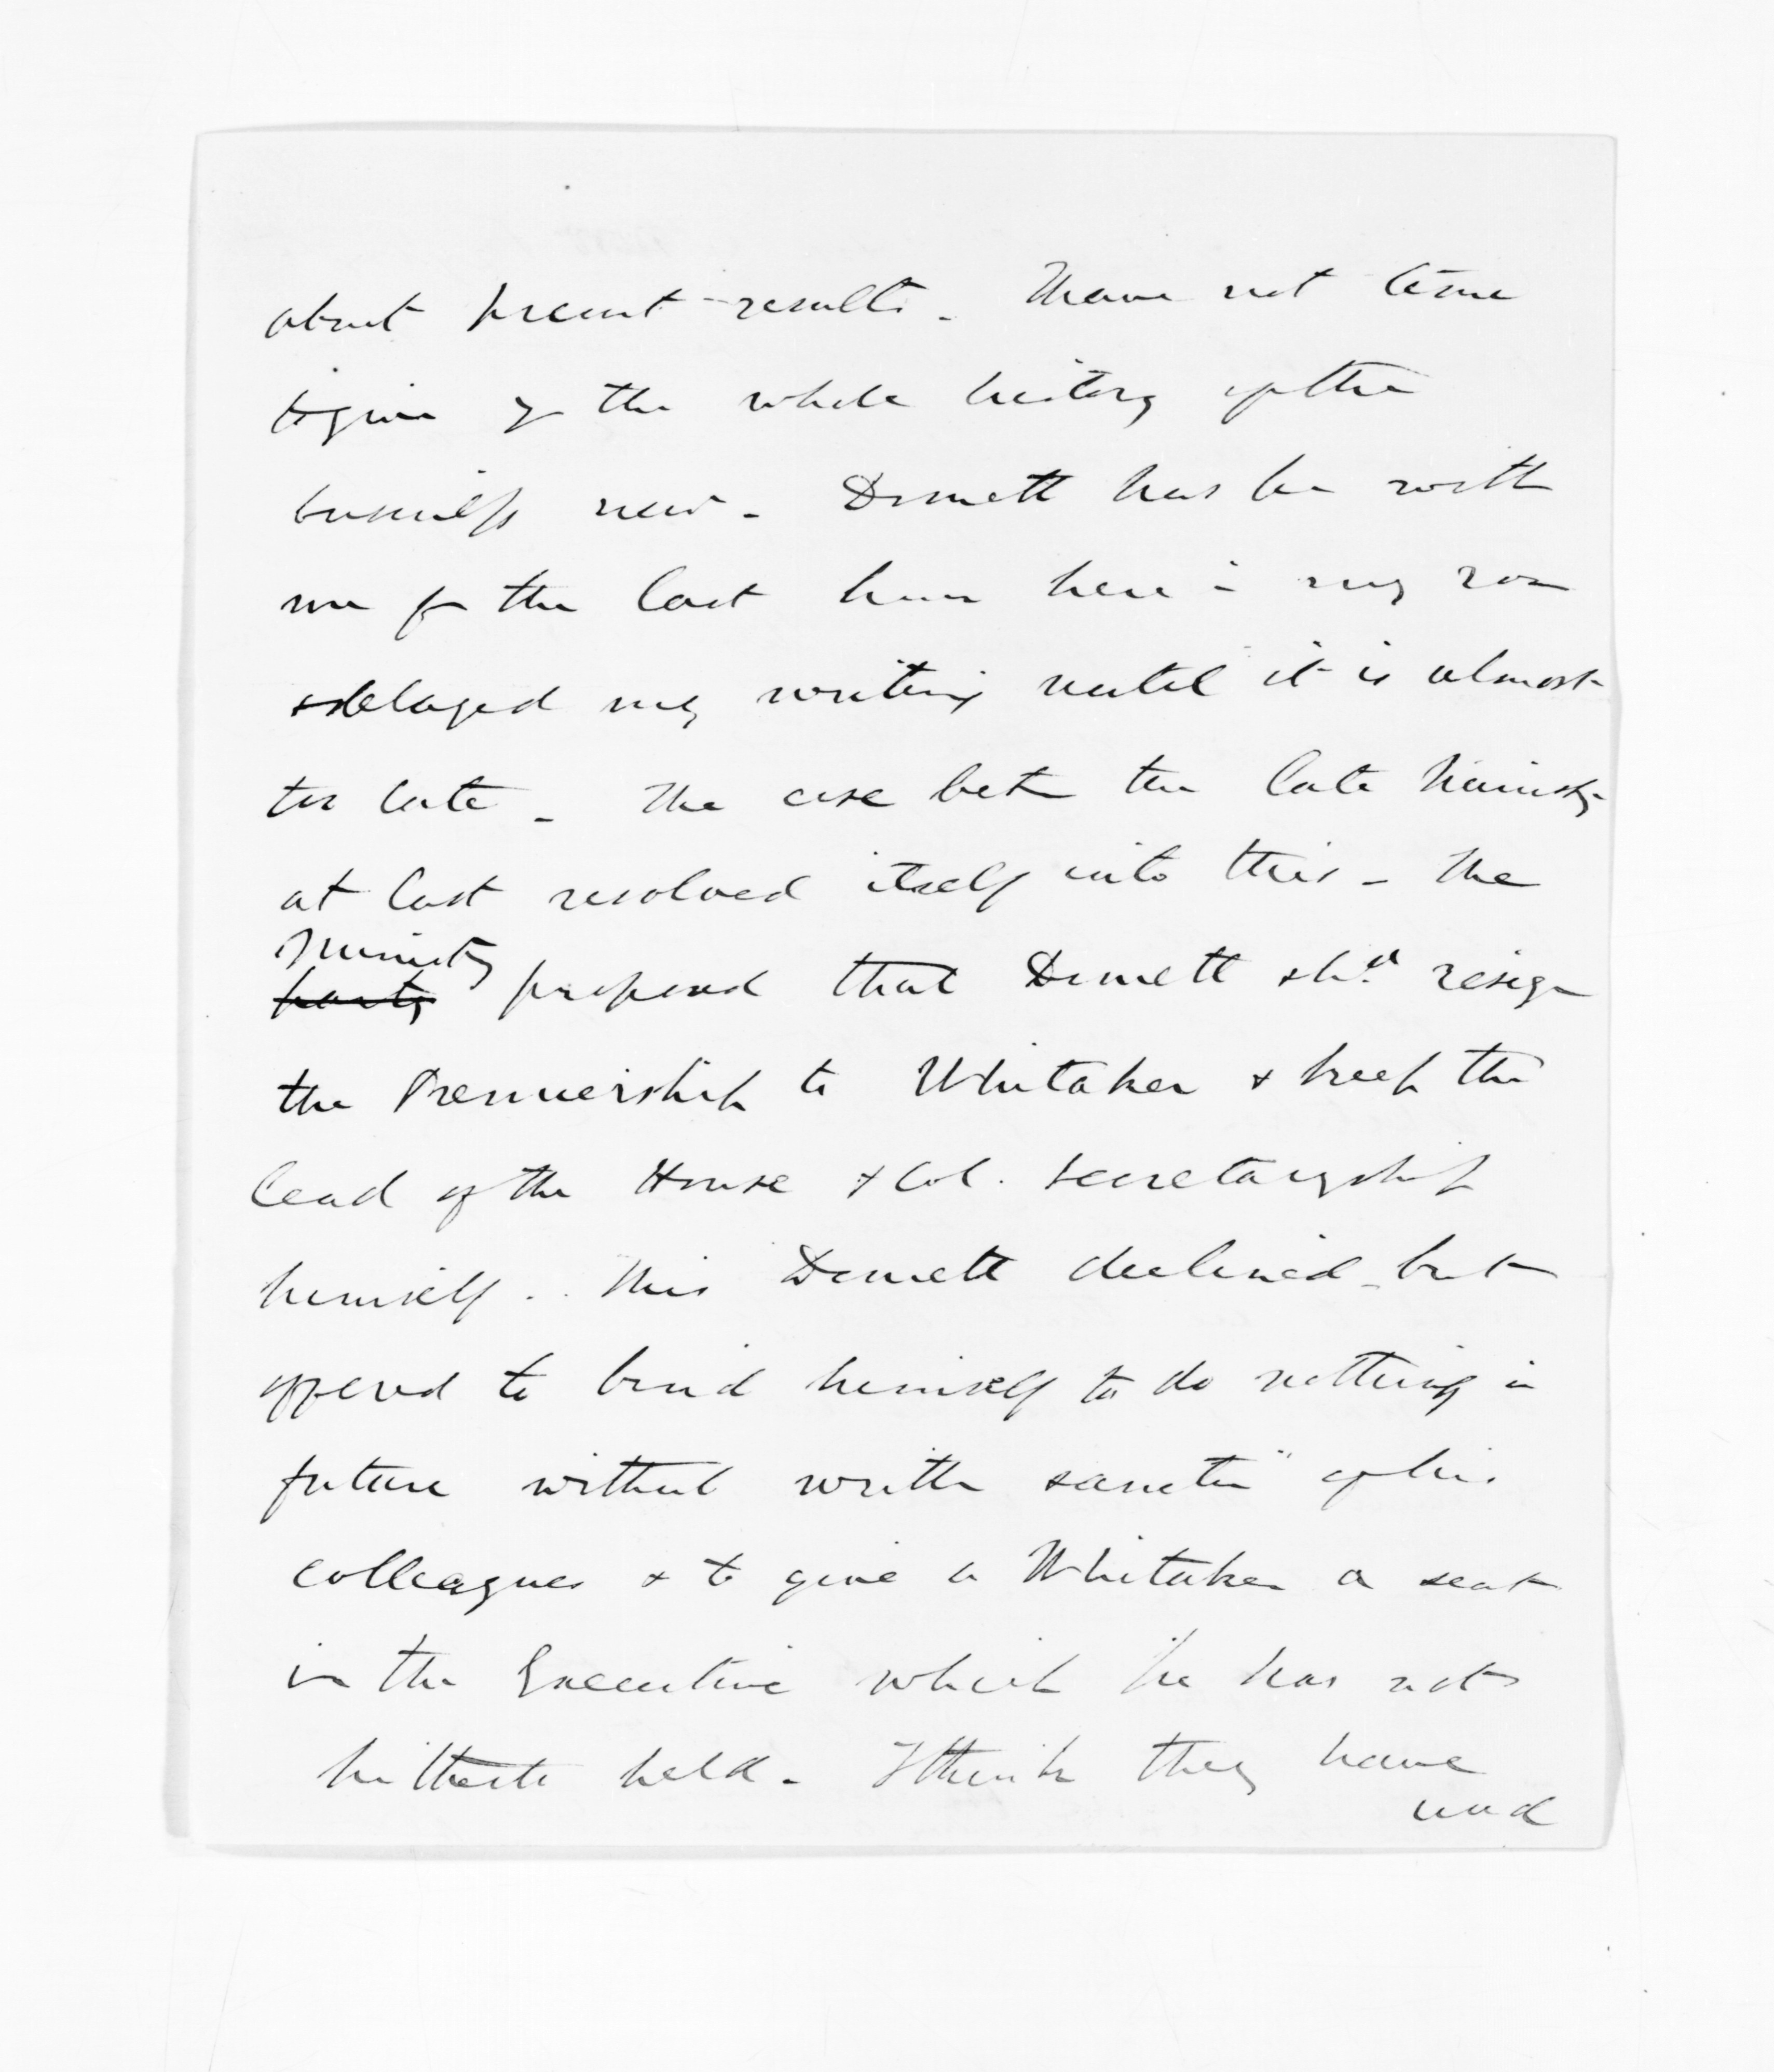 about present results. I have not time
to give y the whole history of the
business now. Domett has been with
me for the last hour here in my room
& delayed my writing until it is almost
too late. The case betn the late Ministry
at last resolved itself into this - The
Ministry
party proposed that Domett shd. resign
the Premiership to Whitaker & keep the
lead of the House & Col. Secretaryship
himself. This Domett declined - but
offered to bind himself to do nothing in
future without written sanctn of his
colleagues & to give Whitaker a seat
in the Executive which he has not
hitherto held. I think they have